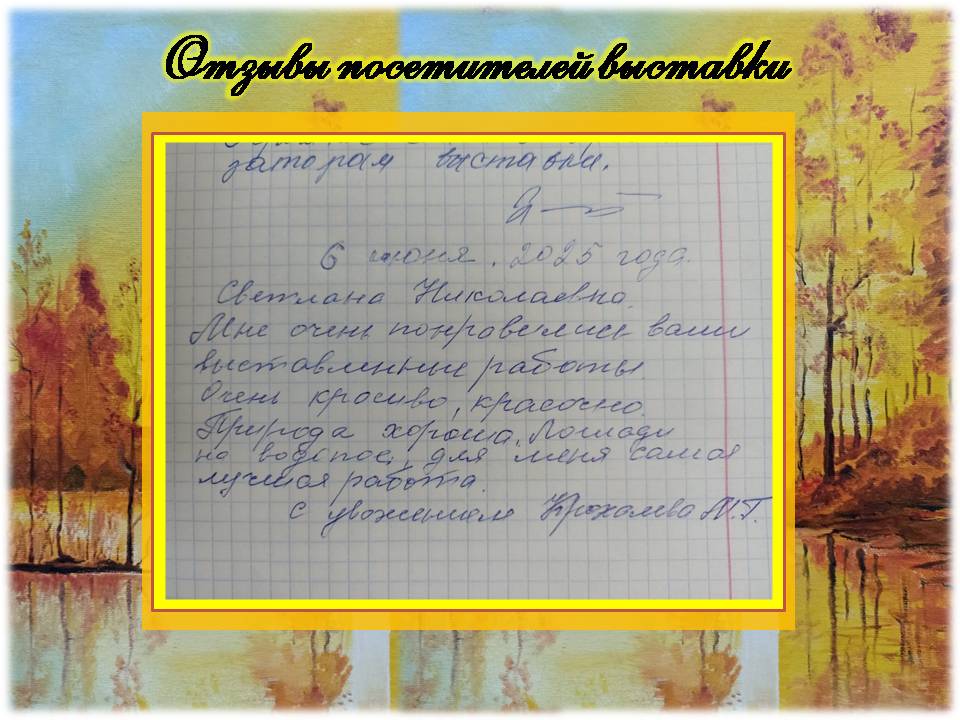 Отзывы посетителей выставки
заторам выставки.
6 июня. 2025 года.
Светлана Николаевна.
Мне очень понравились ваши
выставленные работы
Очень красиво, красочно.
Природа хороша. Лошади
на водопое, для меня самая
лучшая работа.
С уважением Крохалева М.Г.